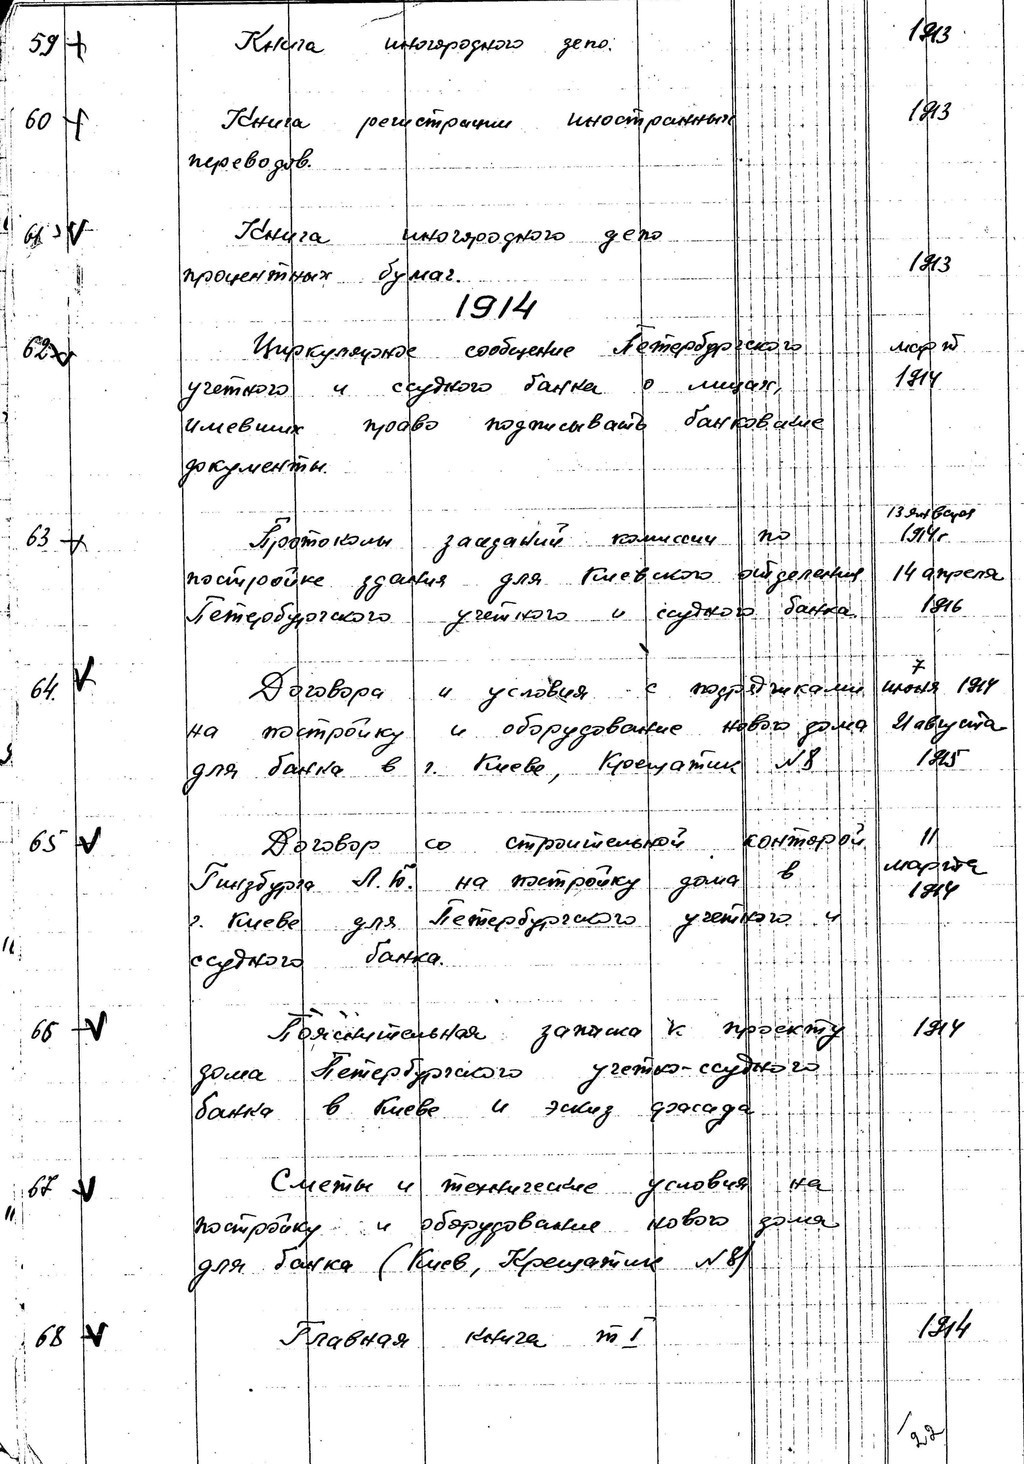 59 Книга иногородного депо. 1913
60 Книга регистрации иностранных 1913
переводов.
61 Книга иногородного депо
процентных бумаг. 1913
1914
62 Циркулярное сообщение Петербургского март
учетного и ссудного банка о лицах, 1914
имевших право подписывать банковские
документы.
13 января
63 Протоколы заседаний комиссии по 1914г
постройке здания для Киевского отделения 14 апреля
Петербургского учетного и ссудного банка. 1916
7
64. Договора и условия с подрядчиками июня 1914
на постройку и оборудование нового дома 21 августа
для банка в г. Киеве, Крещатик №8 1915
65 Договор со строительной конторой 11
Гинзбурга Л.Б. на постройку дома в марта
1914
г. Киеве для Петербургского учетного и
ссудного банка.
66 Пояснительная записка к проекту 1914
дома Петербургского учетно-ссудного
банка в Киеве и эскиз фасада
67 Сметы и технические условия на
постройку и оборудование нового дома
для банка (Киев, Крещатик №8)
68 Главная книга т I 1914
22